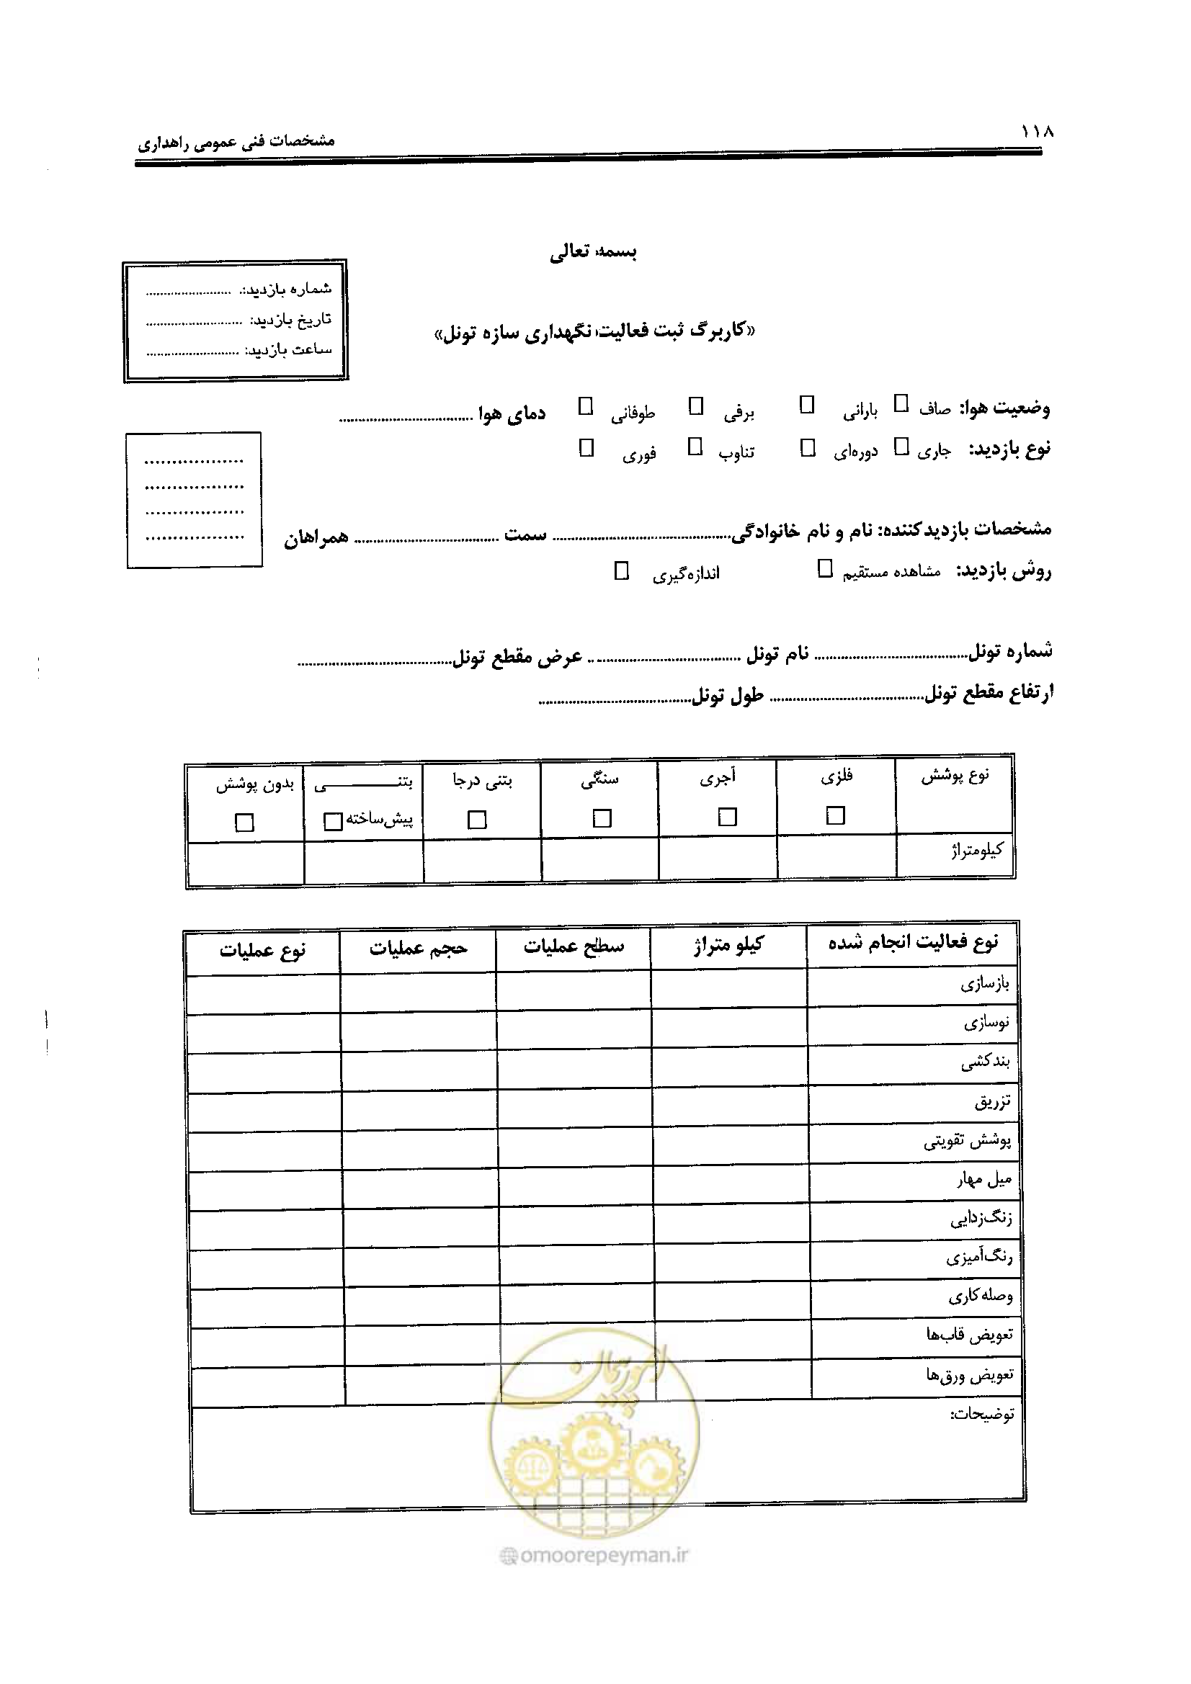 ۱۱۸
مشخصات فنی عمومی راهداری
بسمه تعالی
شماره بازدید: ........................
تاریخ بازدید: ...........................
ساعت بازدید: ..........................
«کاربرگ ثبت فعالیت نگهداری سازه تونل»
وضعیت هوا: صاف □ بارانی □ برفی □ طوفانی □ دمای هوا ..................................
نوع بازدید: جاری □ دوره‌ای □ تناوب □ فوری □
......................
......................
......................
......................
مشخصات بازدیدکننده: نام و نام خانوادگی............................................. سمت ..................................... همراهان
روش بازدید: مشاهده مستقیم □ اندازه‌گیری □
شماره تونل....................................... نام تونل ....................................... عرض مقطع تونل.......................................
ارتفاع مقطع تونل....................................... طول تونل.......................................
نوع پوشش فلزی □ آجری □ سنگی □ بتنی درجا □ بتنـــــــــی پیش‌ساخته □ بدون پوشش □
کیلومتراژ
نوع فعالیت انجام شده کیلو متراژ سطح عملیات حجم عملیات نوع عملیات
بازسازی
نوسازی
بندکشی
تزریق
پوشش تقویتی
میل مهار
زنگ‌زدایی
رنگ‌آمیزی
وصله‌کاری
تعویض قاب‌ها
تعویض ورق‌ها
توضیحات:
امور پیمان
@omoorepeyman.ir